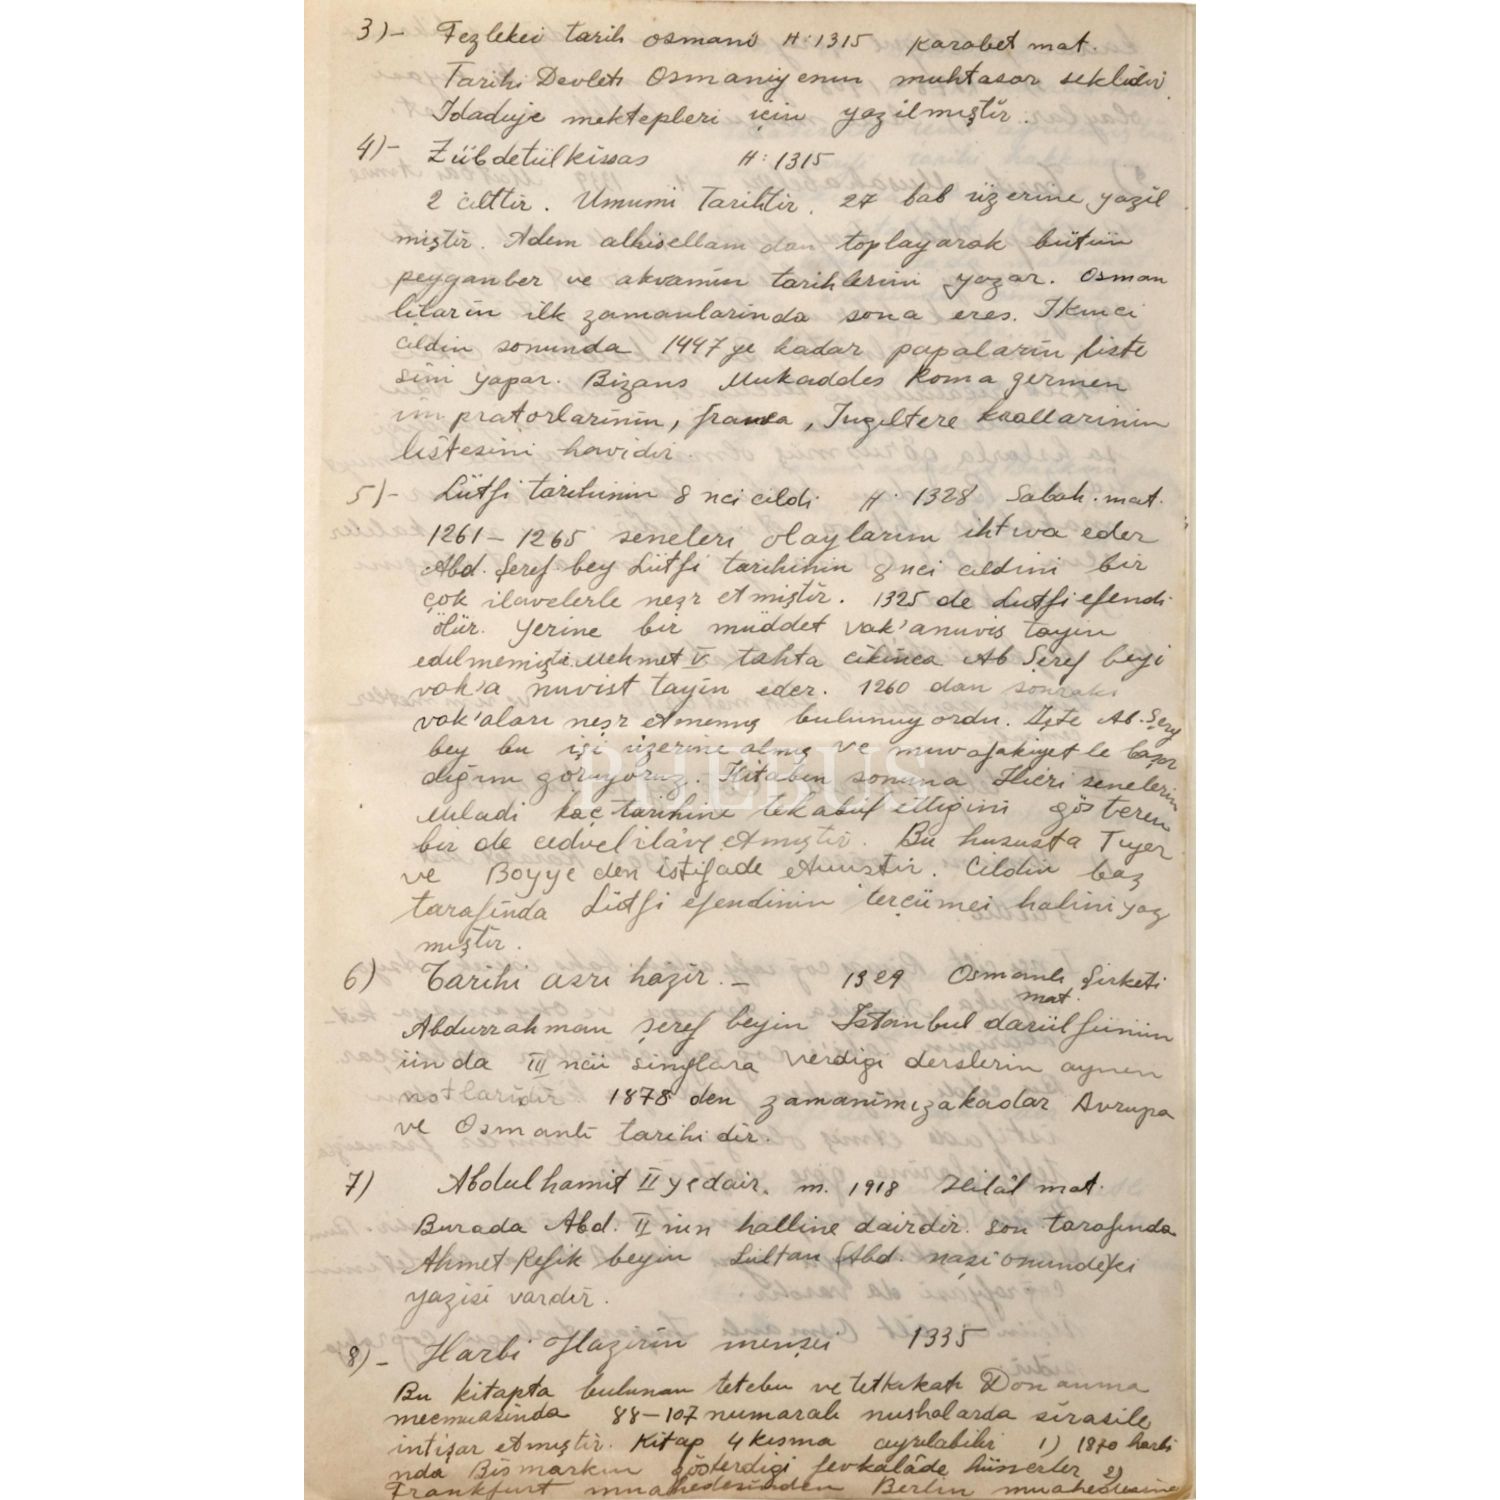 3)- Fezlekei tarih osmani H:1315 Karabet mat.
Tarihi Devleti Osmaniyenin muhtasar seklidir
Idadiye mektepleri için yazilmıştir.
4)- Zübdetülkissas H:1315
2 cilttir. Umumi Tarihtir. 27 bab üzerine yazil
miştir. Adem alhisellam dan toplayarak bütün
peyganber ve akvamın tarihlerini yazar. Osman
liların ilk zamanlarinda sona eres. Ikinci
cildin sonunda 1447 ye kadar papaların liste
sini yapar. Bizans Mukaddes Roma germen
impratorlarinin, fransa, Ingiltere krallarinin
listesini havidir.
5)- Lütfi tarihinin 8 nci cildi H. 1328 Sabah. mat.
1261-1265 seneleri olaylarını ihtiva eder
Abd. Şeref bey Lütfi tarihinin 8 nci cildini bir
çok ilavelerle neşr etmiştir. 1325 de Lutfi efendi
ölür. Yerine bir müddet vak'anuvis tayin
edilmemişti. Mehmet V. tahta cikinca Ab Şeref beyi
vak'a nuvist tayin eder. 1260 dan sonraki
vak'aları neşr etmemiş bulunuyordu. Işte Ab. Şeref
bey bu işi üzerine almış ve muvafakiyetle başar
dığını görüyoruz. Kitabın sonuna Hicri senelerin
Miladi kaç tarihine tekabül ettiğini gösteren
bir de cedvel ilâve etmiştir. Bu hususta Tıyer
ve Boyye den istifade etmiştir. Cildin baş
tarafinda Lütfi efendinin tercümei halini yaz
mıştır.
6) Tarihi asrı hazir. - 1329 Osmanlı Şirketi
mat.
Abdurrahman Şeref beyin Istanbul darülfünün
ünda III ncü sinıflara verdigi derslerin aynen
notlarıdır 1878 den zamanimıza kadar Avrupa
ve Osmanli tarihidir.
7) Abdulhamit II ye dair. m. 1918 Hilâl mat.
Burada Abd. II nin halline dairdir. Son tarafında
Ahmet Refik beyin Sultan Abd. naşi onundeki
yazisi vardır.
8)- Harbi Hazirin menşei 1335
Bu kitapta bulunan tetebu ve tetkikatı Donanma
mecmuasinda 88-107 numaralı nushalarda sirasile
intişar etmıştir. Kitap 4 kısma ayrılabilir 1) 1870 harbi
nda Bismarkın gösterdigi fevkalâde hünerler 2)
Frankfurt muahedesinden Berlin muahedesine
PHEBUS